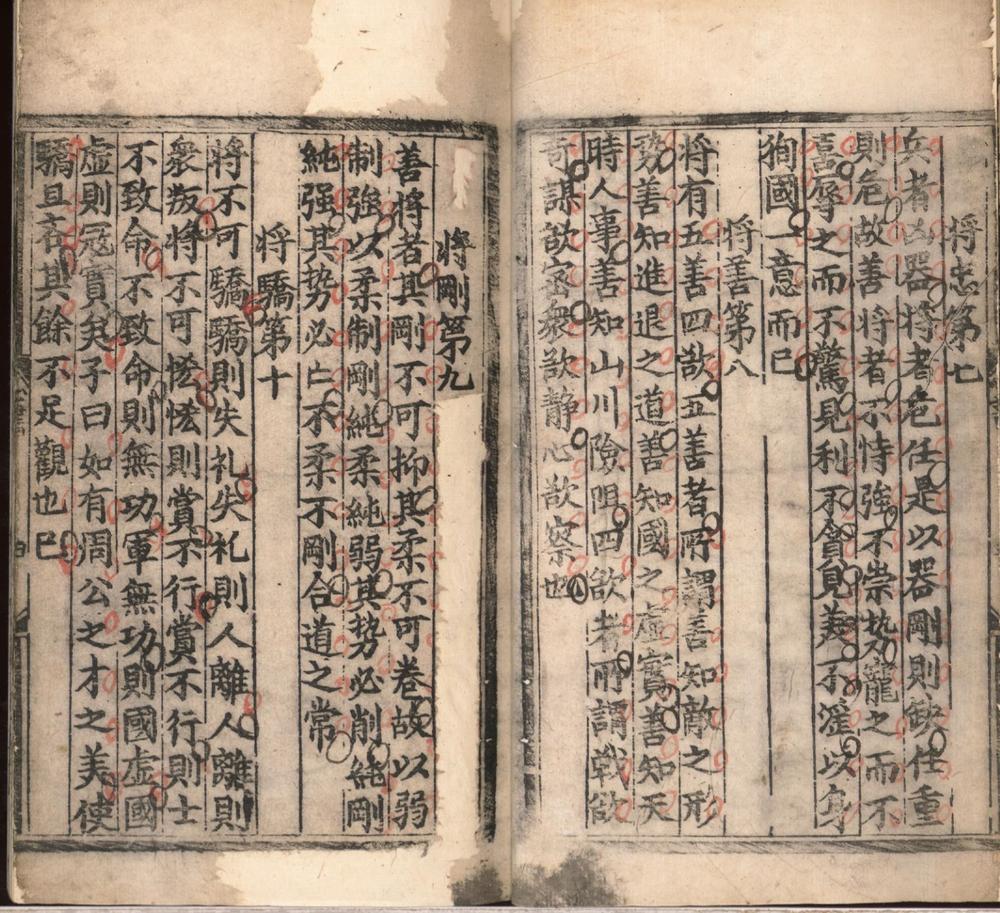 将忠第七
兵者凶器将者危任是以器剛則缺任重
則危故善将者不恃強不崇势寵之而不
喜辱之而不驚見利不貪見美不滛以身
狥國一意而已
将善第八
将有五善四欲五善者所謂善知敵之形
势善知進退之道善知國之虛實善知天
時人事善知山川險阻四欲者所謂戦欲
奇謀欲密衆欲静心欲察也
將剛第九
善将者其剛不可抑其柔不可卷故以弱
制強以柔制剛純柔純弱其势必削純剛
純强其势必亡不柔不剛合道之常
将驕第十
将不可驕驕則失礼失礼則人離人離則
衆叛将不可恡恡則賞不行賞不行則士
不致命不致命則無功軍無功則國虛國
虛則冦實矣子曰如有周公之才之美使
驕且吝其餘不足觀也已